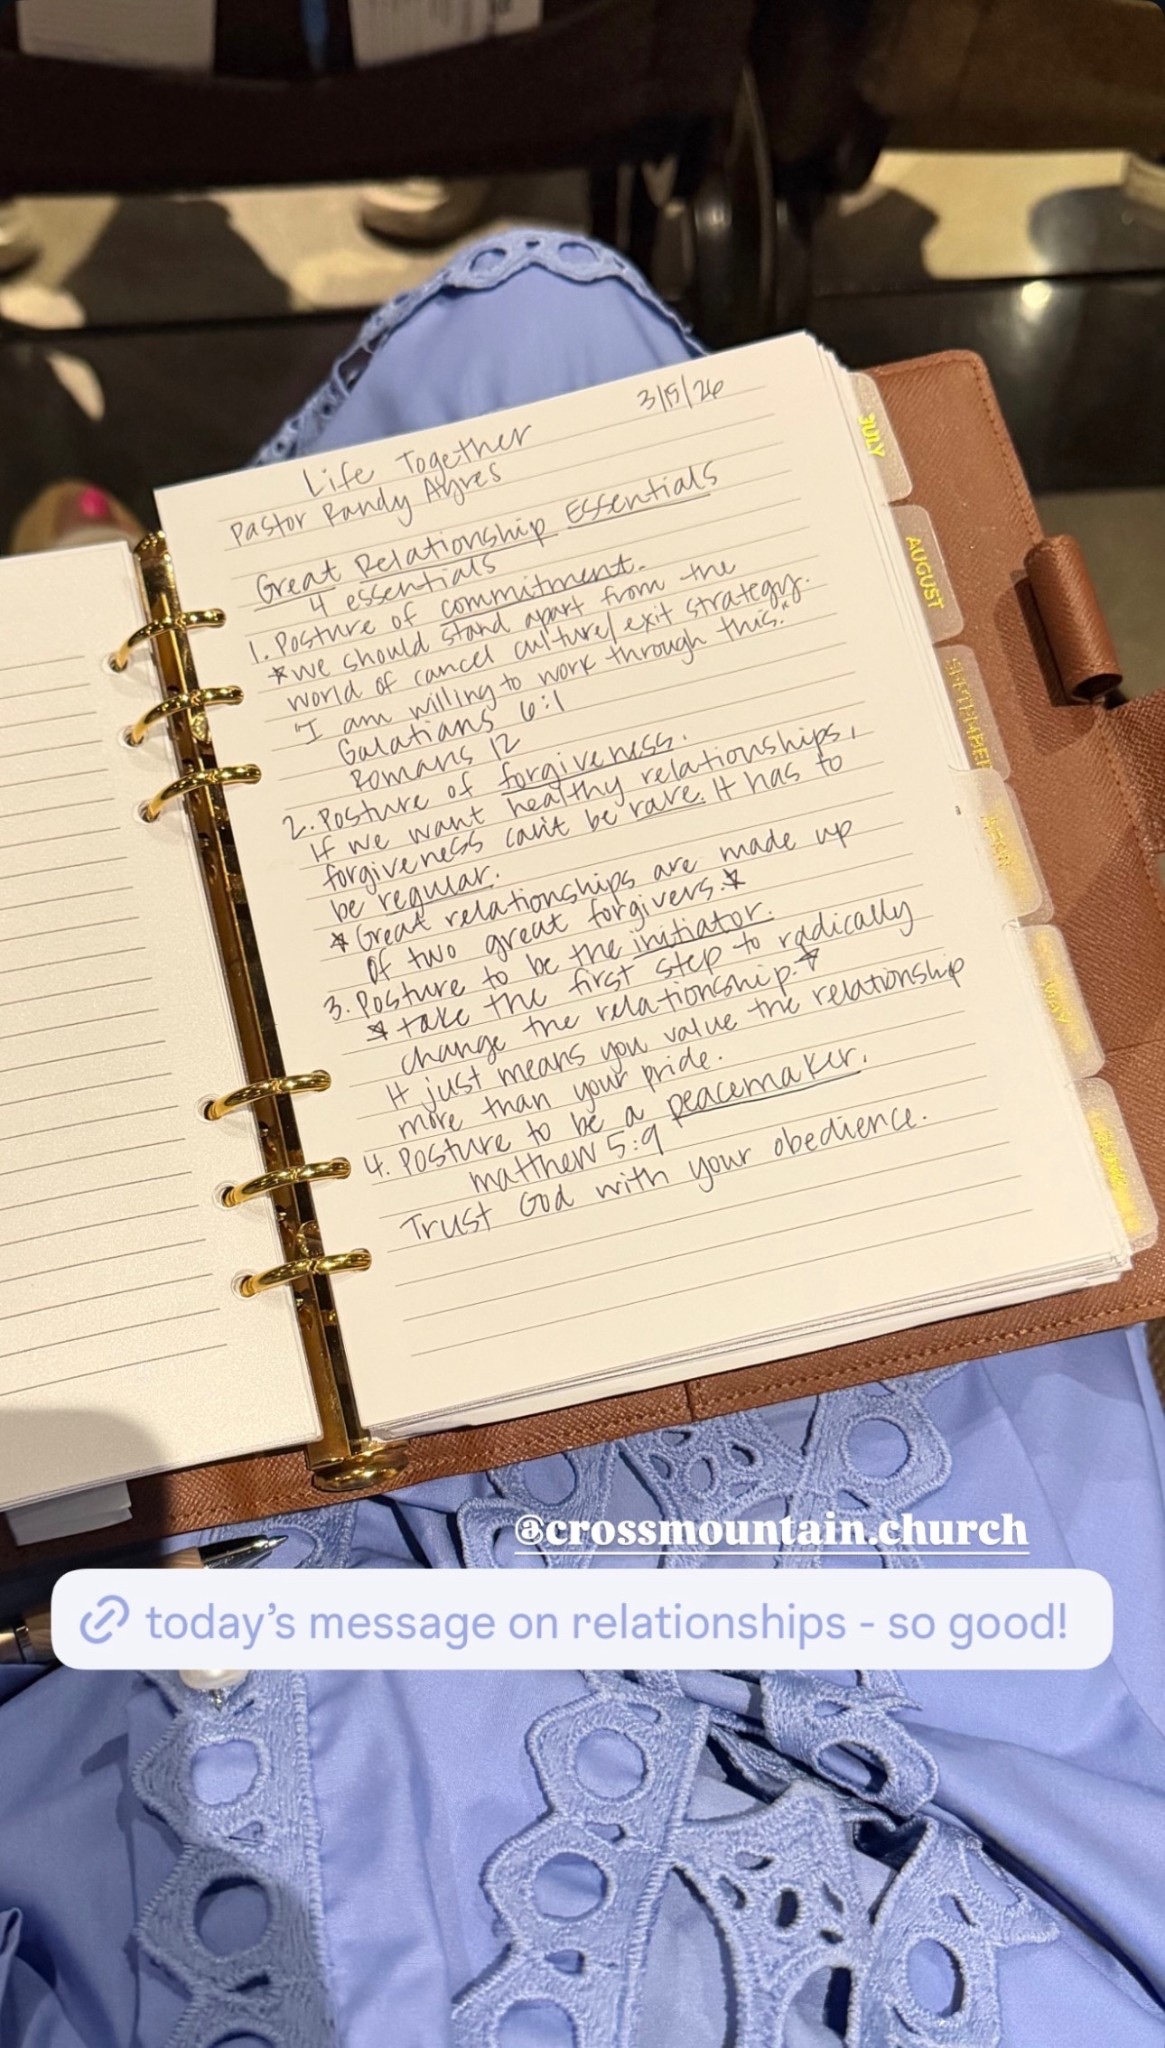 3/15/26
Life Together
Pastor Randy Ayres
Great Relationship Essentials
4 essentials
1. Posture of commitment.
*we should stand apart from the
world of cancel culture/exit strategy.
"I am willing to work through this."
Galatians 6:1
Romans 12
2. Posture of forgiveness.
If we want healthy relationships,
forgiveness can't be rare. It has to
be regular.
*Great relationships are made up
of two great forgivers.*
3. Posture to be the initiator.
*take the first step to radically
change the relationship.*
It just means you value the relationship
more than your pride.
4. Posture to be a peacemaker.
matthew 5:9
Trust God with your obedience.
JULY
AUGUST
SEPTEMBER
@crossmountain.church
today's message on relationships - so good!